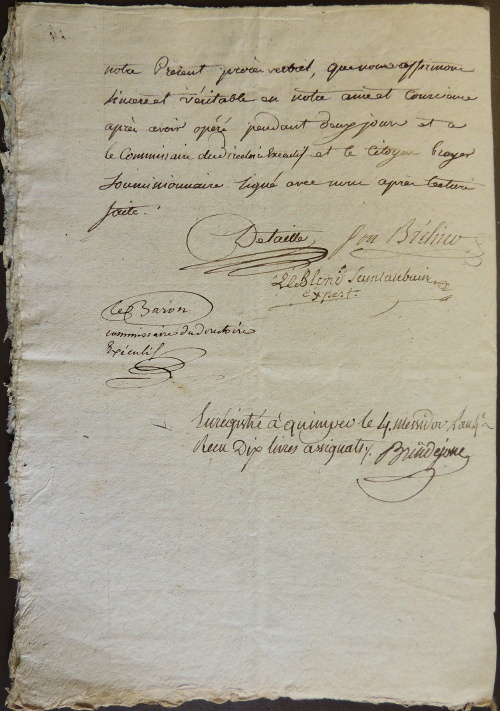 notre Présent procès verbal, que nous affirmons
sincere et véritable en notre ame et Conscience
après avoir opéré pendant deux jours et a
le Commissaire du directoire Executif et le Citoyen
Soumissionnaire signé avec nous après lecture
faite.
Detaille
Le Blond Saintaubain
Expert.
le Baron
commissaire du directoire
Exécutif
Enrégistré à quimper le 4. messidor l'an 4e
Recu Dix livres assignats.